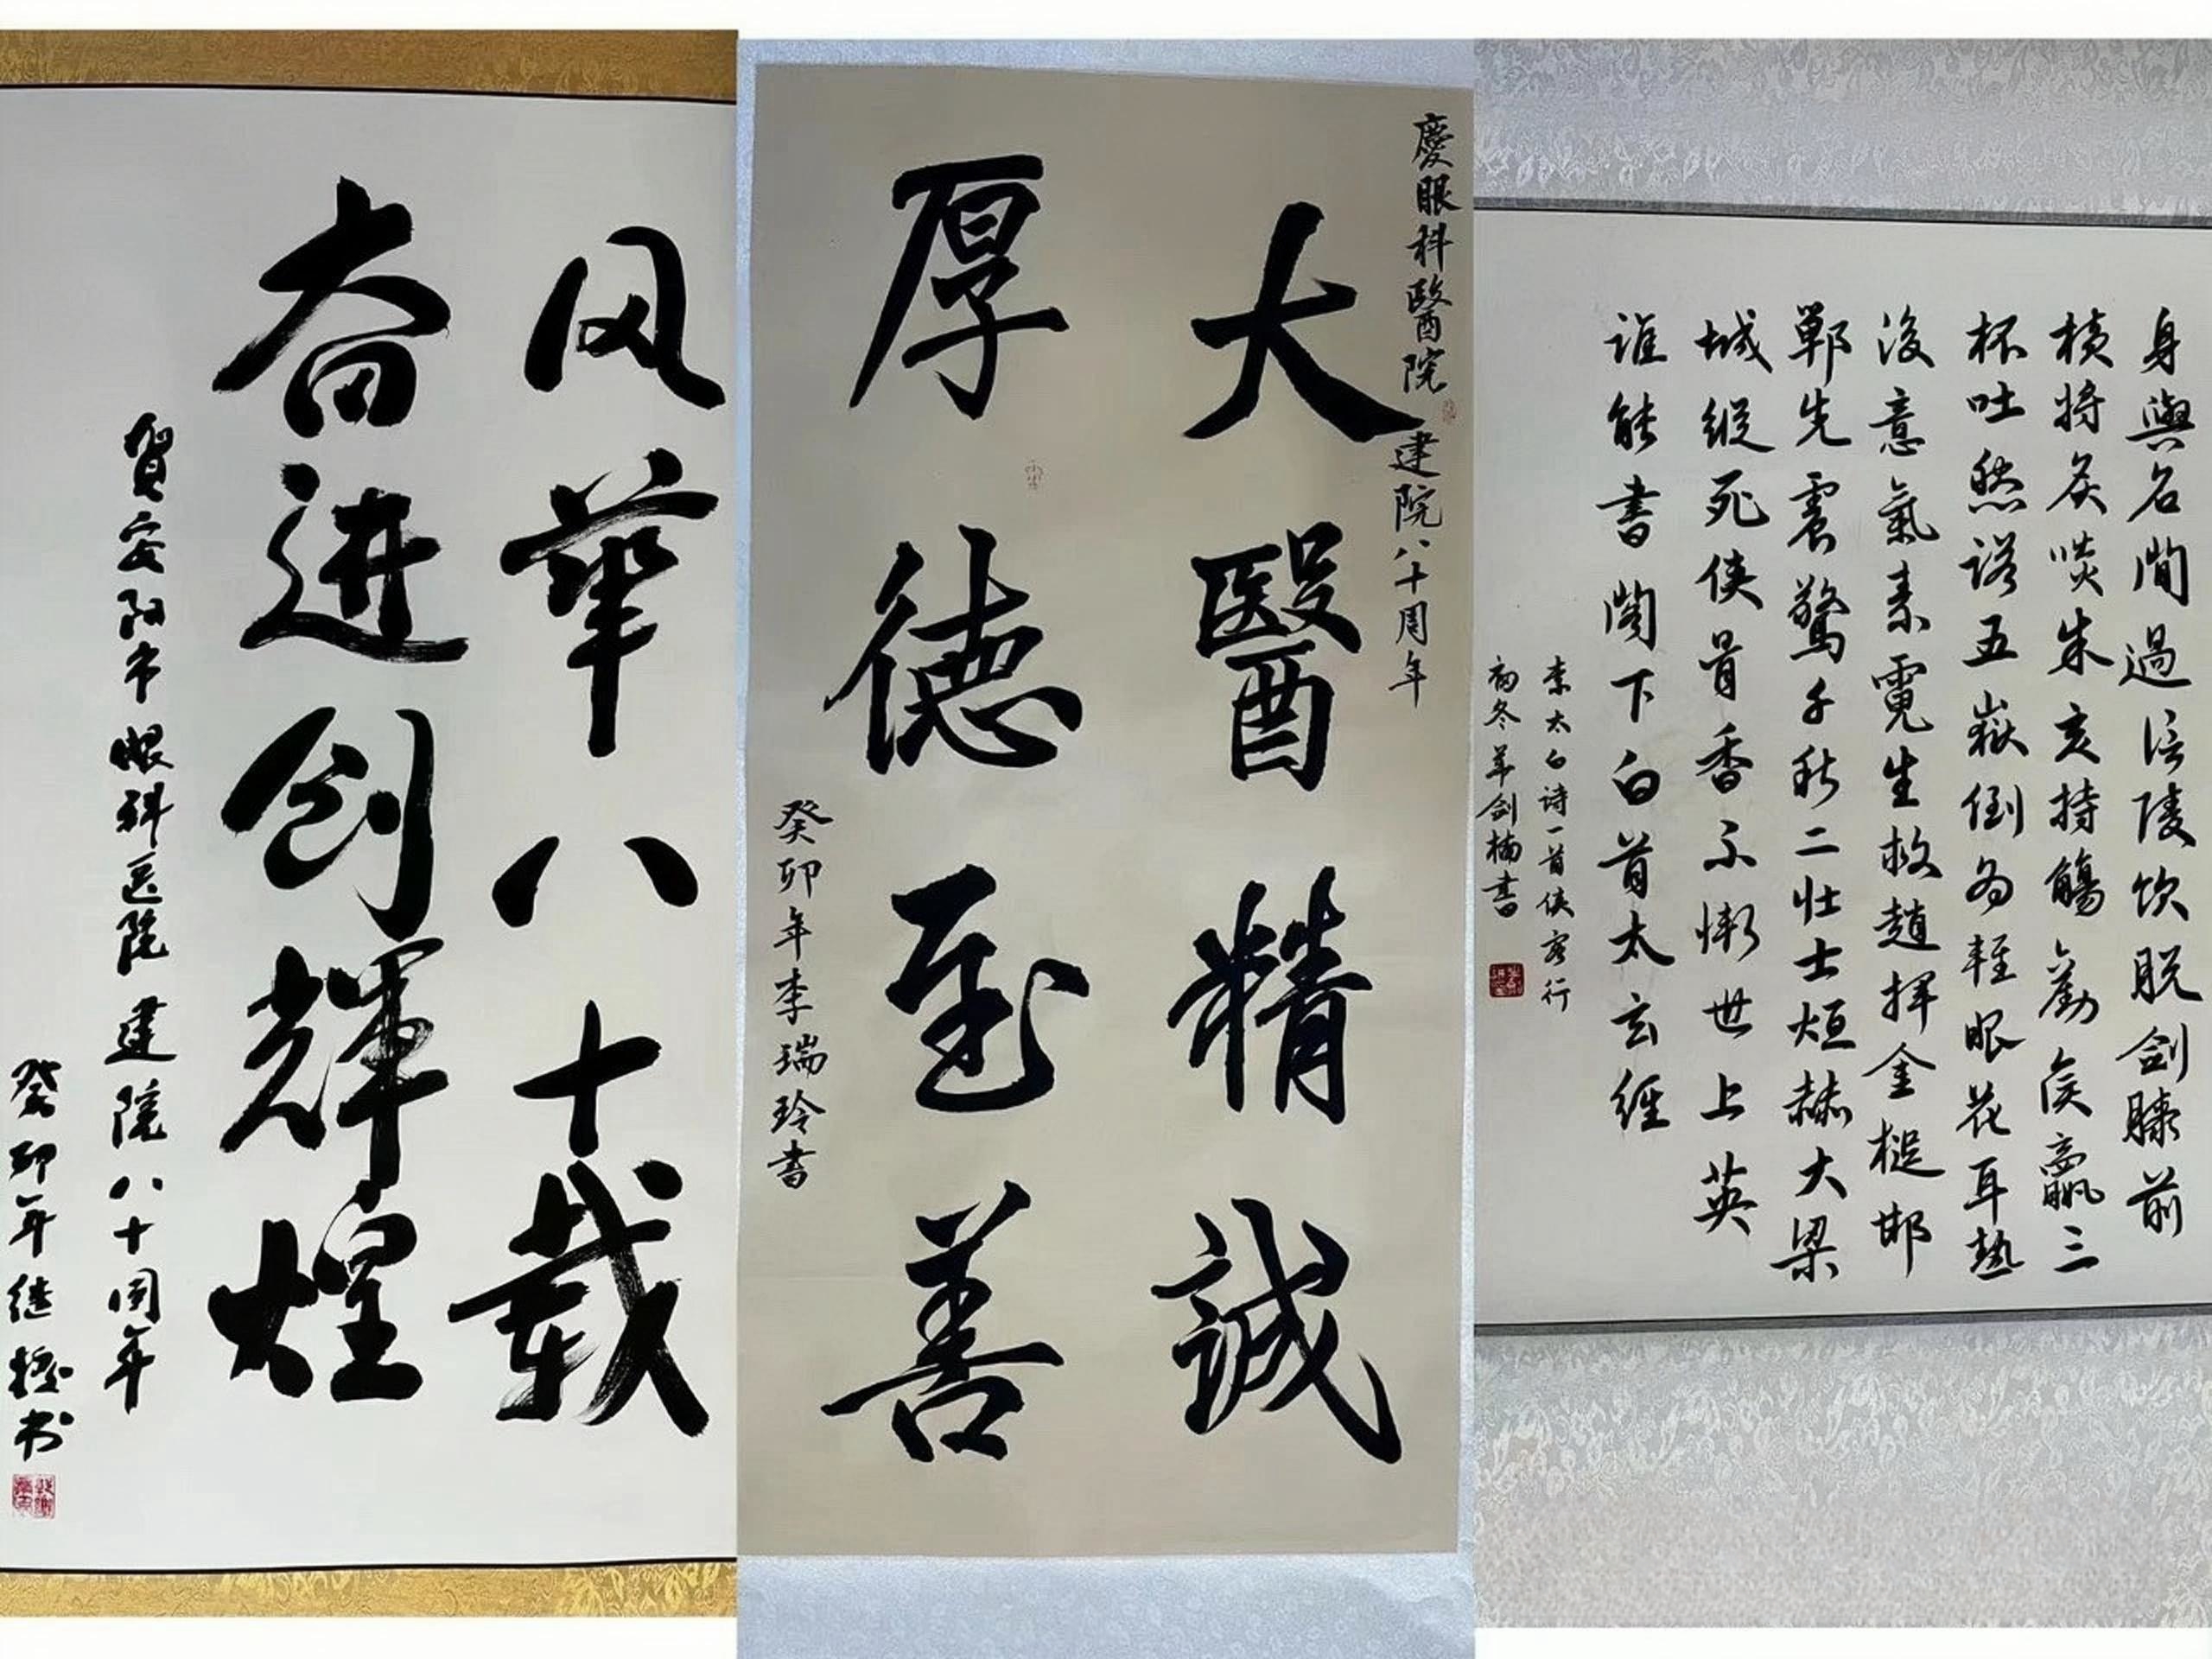 风華八十载
奋进创輝煌
贺安阳市眼科医院建院八十周年
癸卯年继书
慶眼科醫院建院八十周年
大醫精誠
厚德至善
癸卯年李瑞玲書
身與名閒過信陵饮脱劍膝前
横将炙啖朱亥持觴勸侯嬴三
杯吐然诺五嶽倒為輕眼花耳熱
後意氣素霓生救趙挥金槌邯
鄲先震驚千秋二壮士烜赫大梁
城縱死侠骨香不惭世上英
谁能書閣下白首太玄經
李太白诗一首侠客行
初冬羊剑楠書